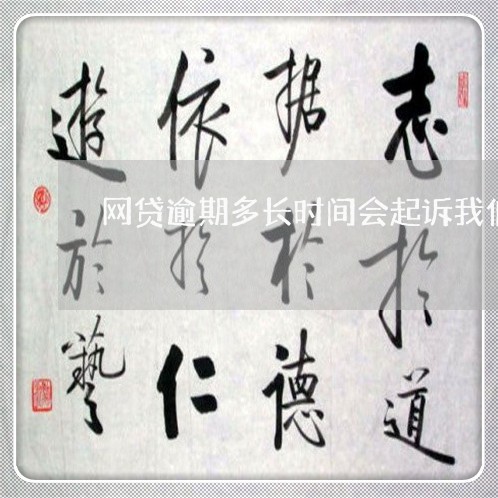 志於道
据於德
依於仁
遊於藝
网贷逾期多长时间会起诉我们